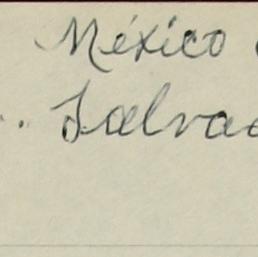 México
.. Salvad